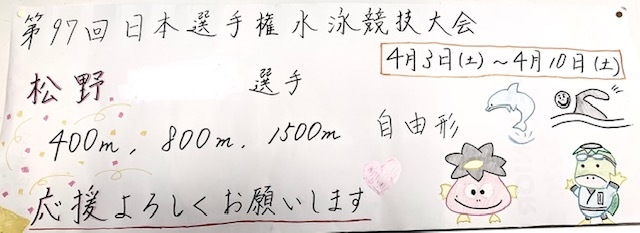 第97回日本選手権水泳競技大会
4月3日(土)～4月10日(土)
松野 選手
400m, 800m, 1500m 自由形
応援よろしくお願いします